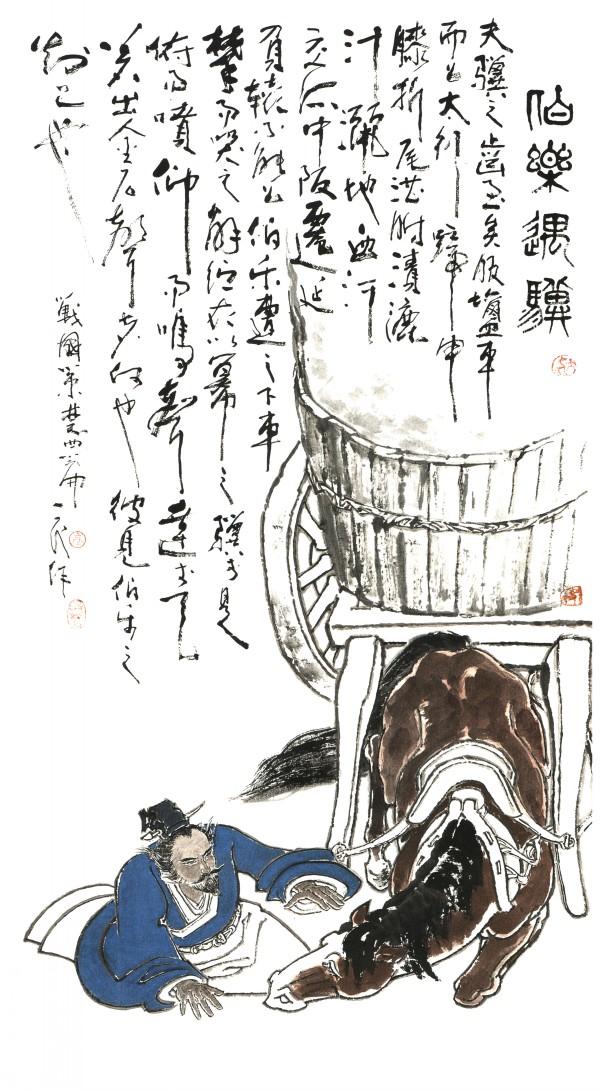 伯樂遇驥
夫驥之齒至矣服鹽車
而上太行蹄申
膝折尾湛胕潰漉
汁灑地白汗
交流中阪遷延
負轅不能上伯乐遭之下車
攀而哭之解紵衣以冪之驥於是
俯而噴仰而鳴聲達於天
若出金石聲者何也彼見伯乐之
知己也
戰國策楚四 一民作